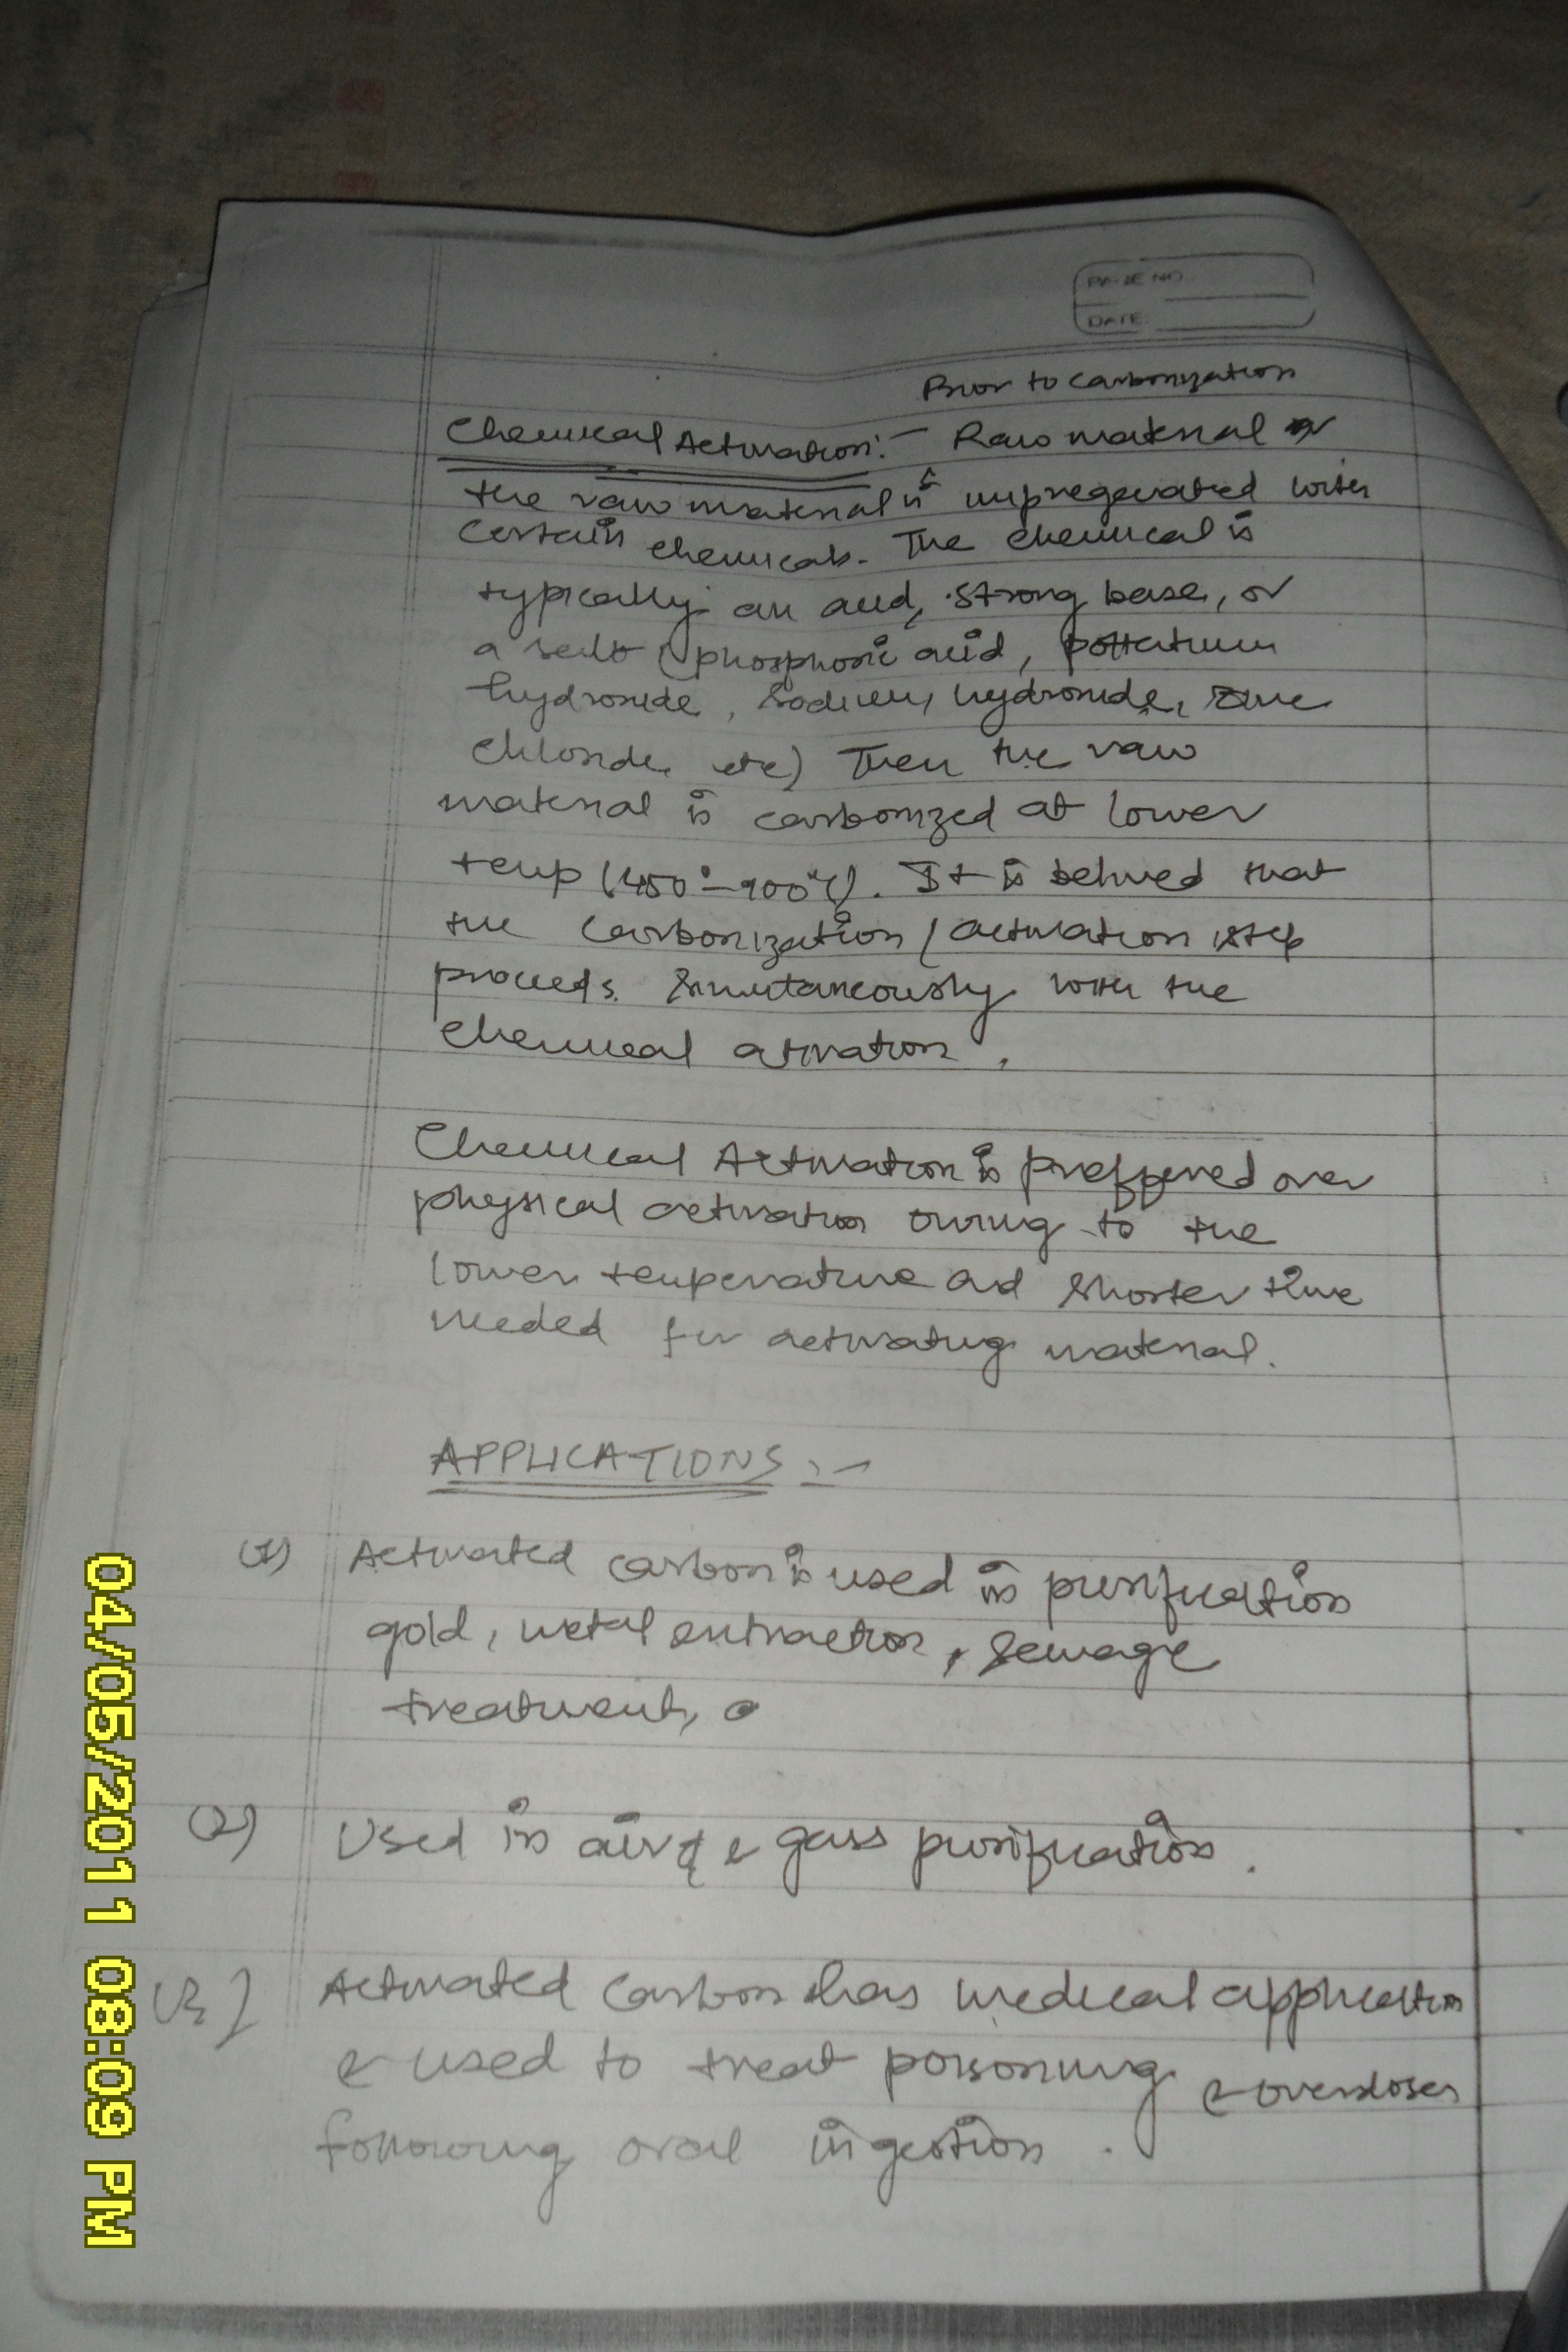 PAGE NO.
DATE:
Prior to carbonization
Chemical Activation:- Raw material
the raw material is impregenated with
certain chemicals. The chemical is
typically an acid, strong base, or
a salt (phosphoric acid, pottatium
hydroxide, sodium hydroxide, zinc
chloride etc) Then the raw
material is carbonized at lower
temp (450°-900°C). It is belived that
the carbonization / activation step
proceeds simultaneously with the
chemical ativation.
Chemical Activation is preffered over
physical activation owing to the
lower temperature and shorter time
needed for activating material.
APPLICATIONS :-
(1) Activated carbon is used in purification
gold, metal extraction, sewage
treatment,
(2) Used in air & gass purification.
(3) Activated carbon has medical application
& used to treat poisoning & overdoses
following oral ingestion.
04/05/2011 08:09 PM